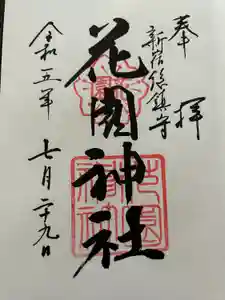 奉拝
新宿総鎮守
花園神社
令和五年
七月二十九日